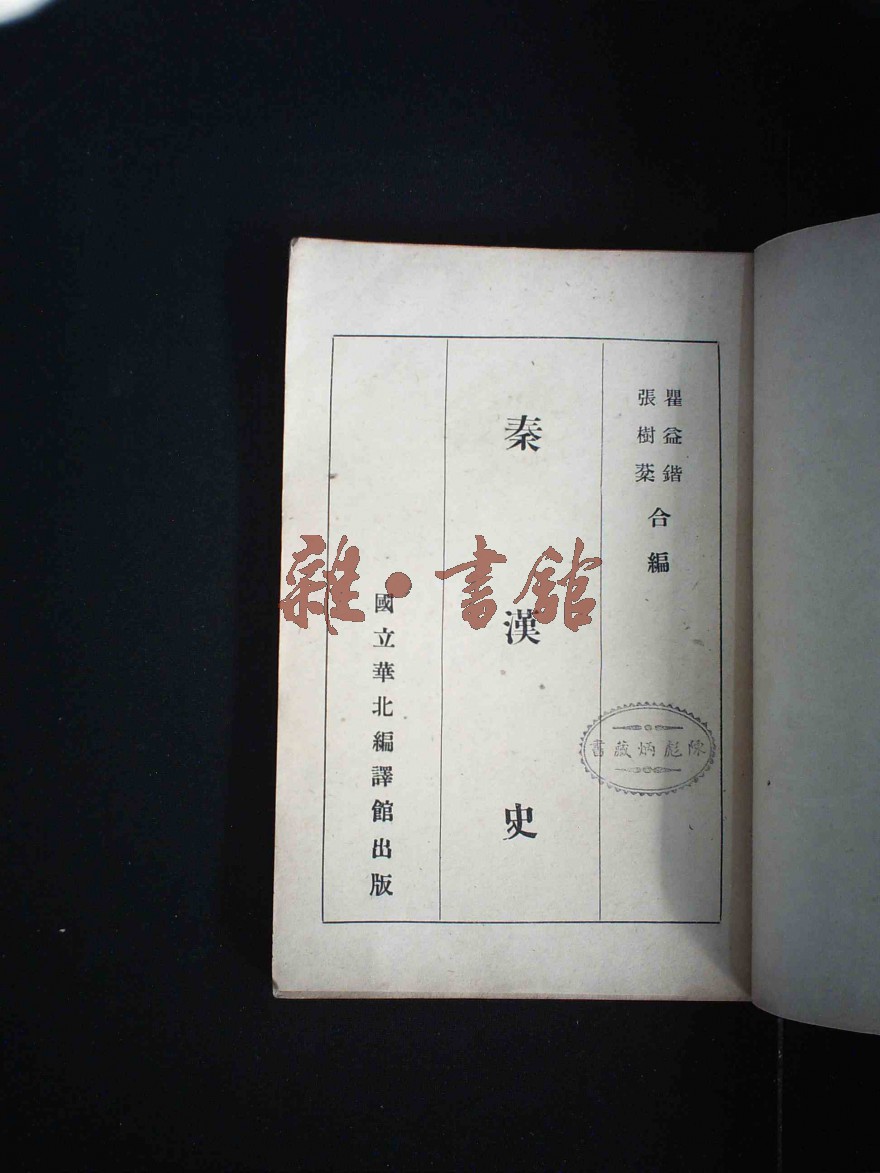 瞿益鍇
張樹棻
合編
秦漢史
國立華北編譯館出版
陳彪炳藏書
雜·書館